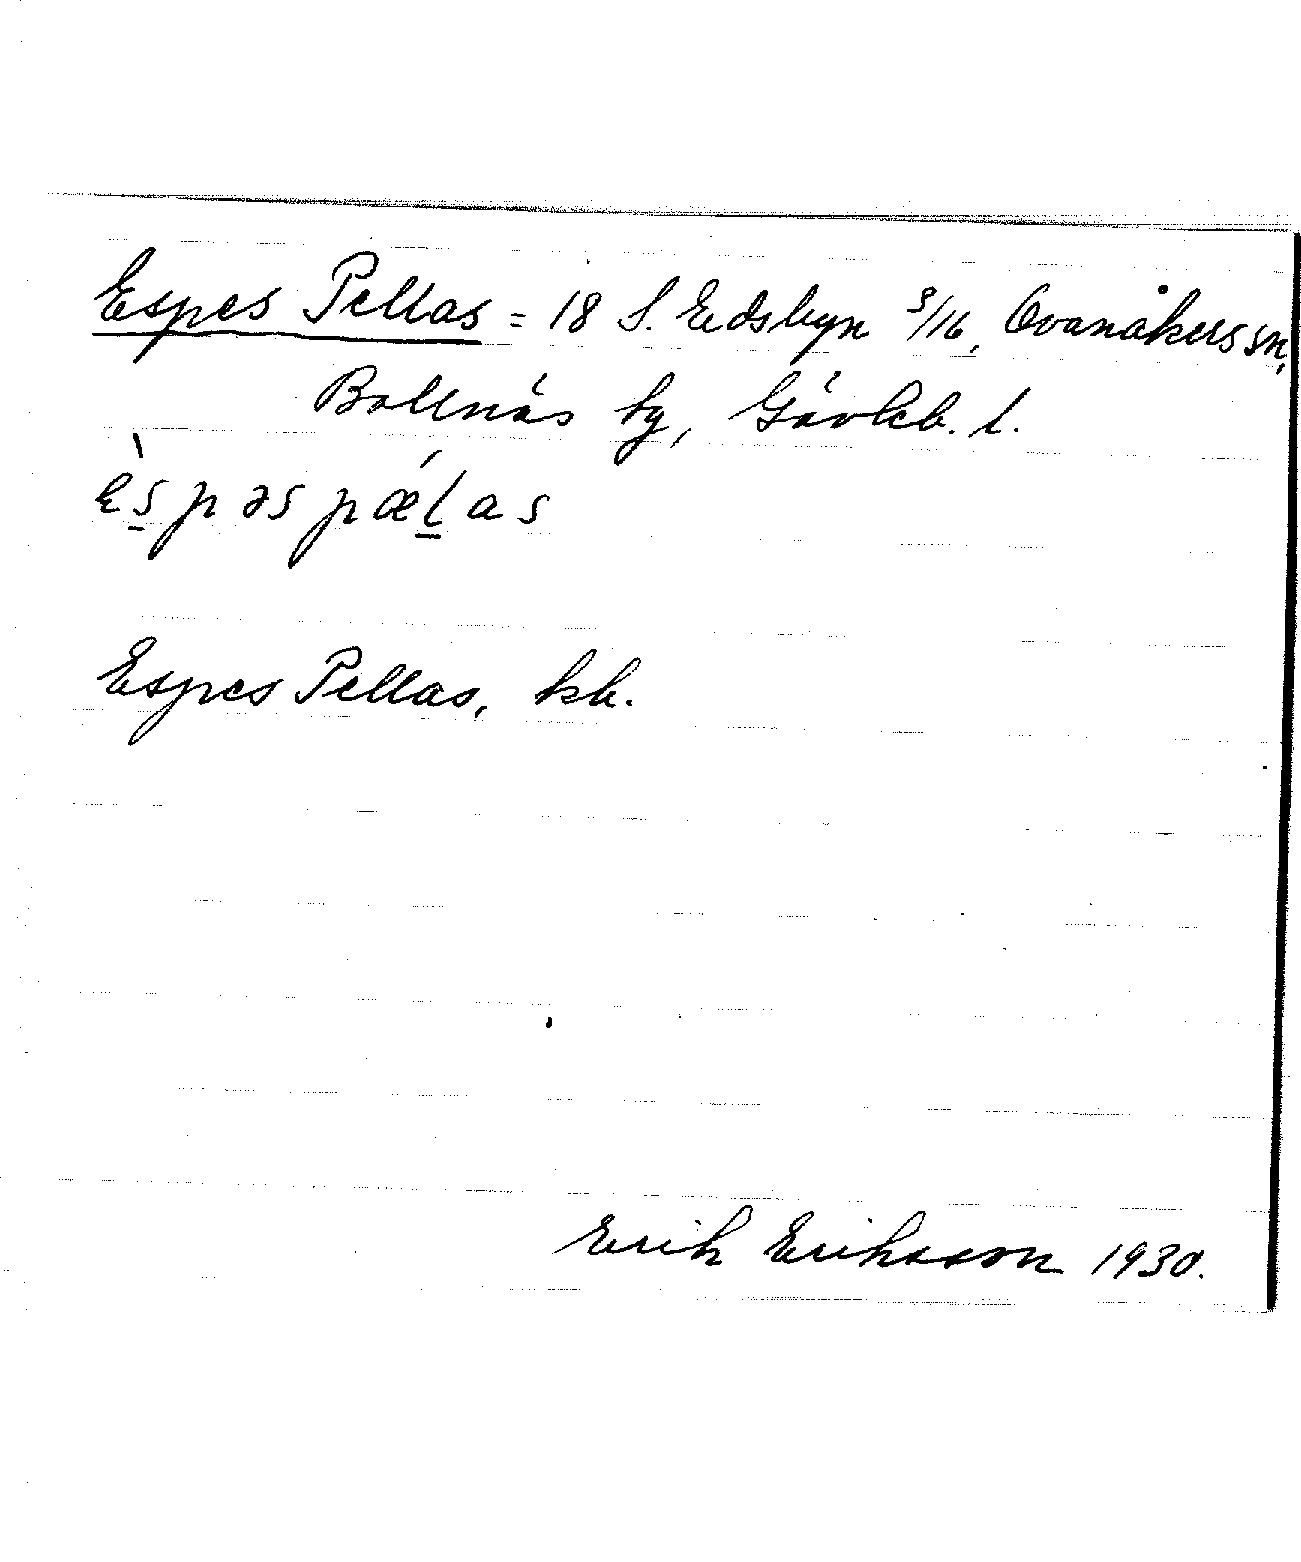 Espes Pellas = 18 S. Edsbyn 3/16, Ovanåkers sn,
Bollnäs tg, Gävleb. l.
ɛ̀s̱pəspǽḻas
Espes Pellas, kb.
Erik Eriksson 1930.